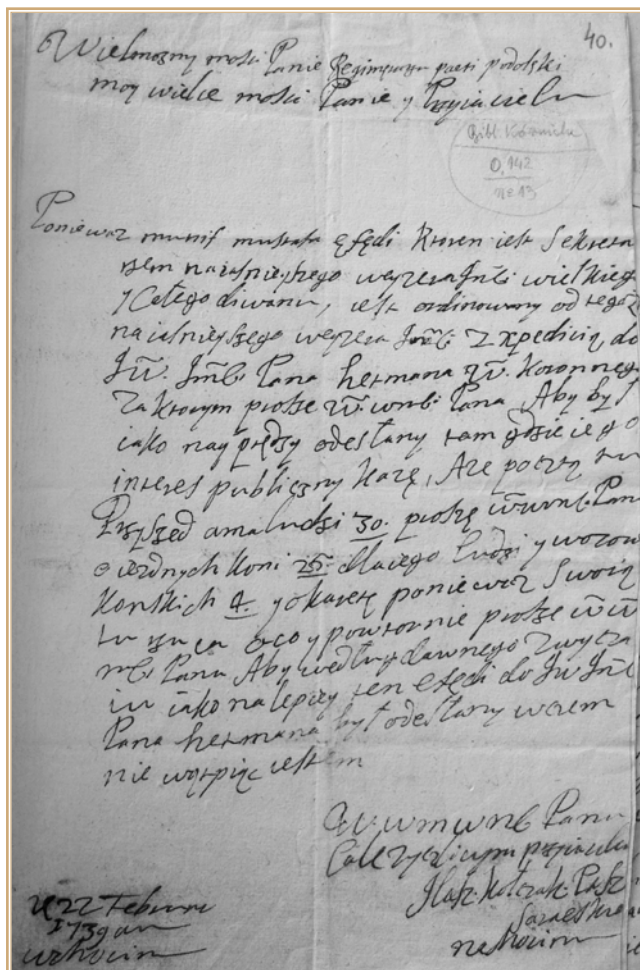 40.
Wielmozny mosci Panie Regimentarzu parti podolski
moy wielce mosci Panie y Przyiacielu
Bibl. Kórnicka
0.142
no 13
Poniewaz munif mustafa efędi Ktoren iest Sekreta
rzem naiasnieyszego wezyra Jmści wielkiego
y Całego diwanu, iest ordinowany od tegoż
naiasnieyszego wezyra Jmści z expedicią do
JW. Jmści Pana hetmana W. Koronnego
Za ktorym proszę Pana Aby był
iako nayprędzy odesłany tam gdzie iego
interes publiczny każe, Aże pocztą tu
Przyszed a ma ludzi 30. proszę Pana
o iezdnych Koni 25. dla iego ludzi y wozow
Konskich 4. y o karetę poniewaz Swoią
tu o co y powtornie proszę
Pana Aby według dawnego zwycza
iu iako nalepiey ten efędi do JW Jmści
Pana hetmana był odesłany w czem
nie wątpiąc iestem
Panu
Całe zyczliwym przyiacielem
Kołczak Pasza
na Chocimu
22 Februar
173
w Chocim